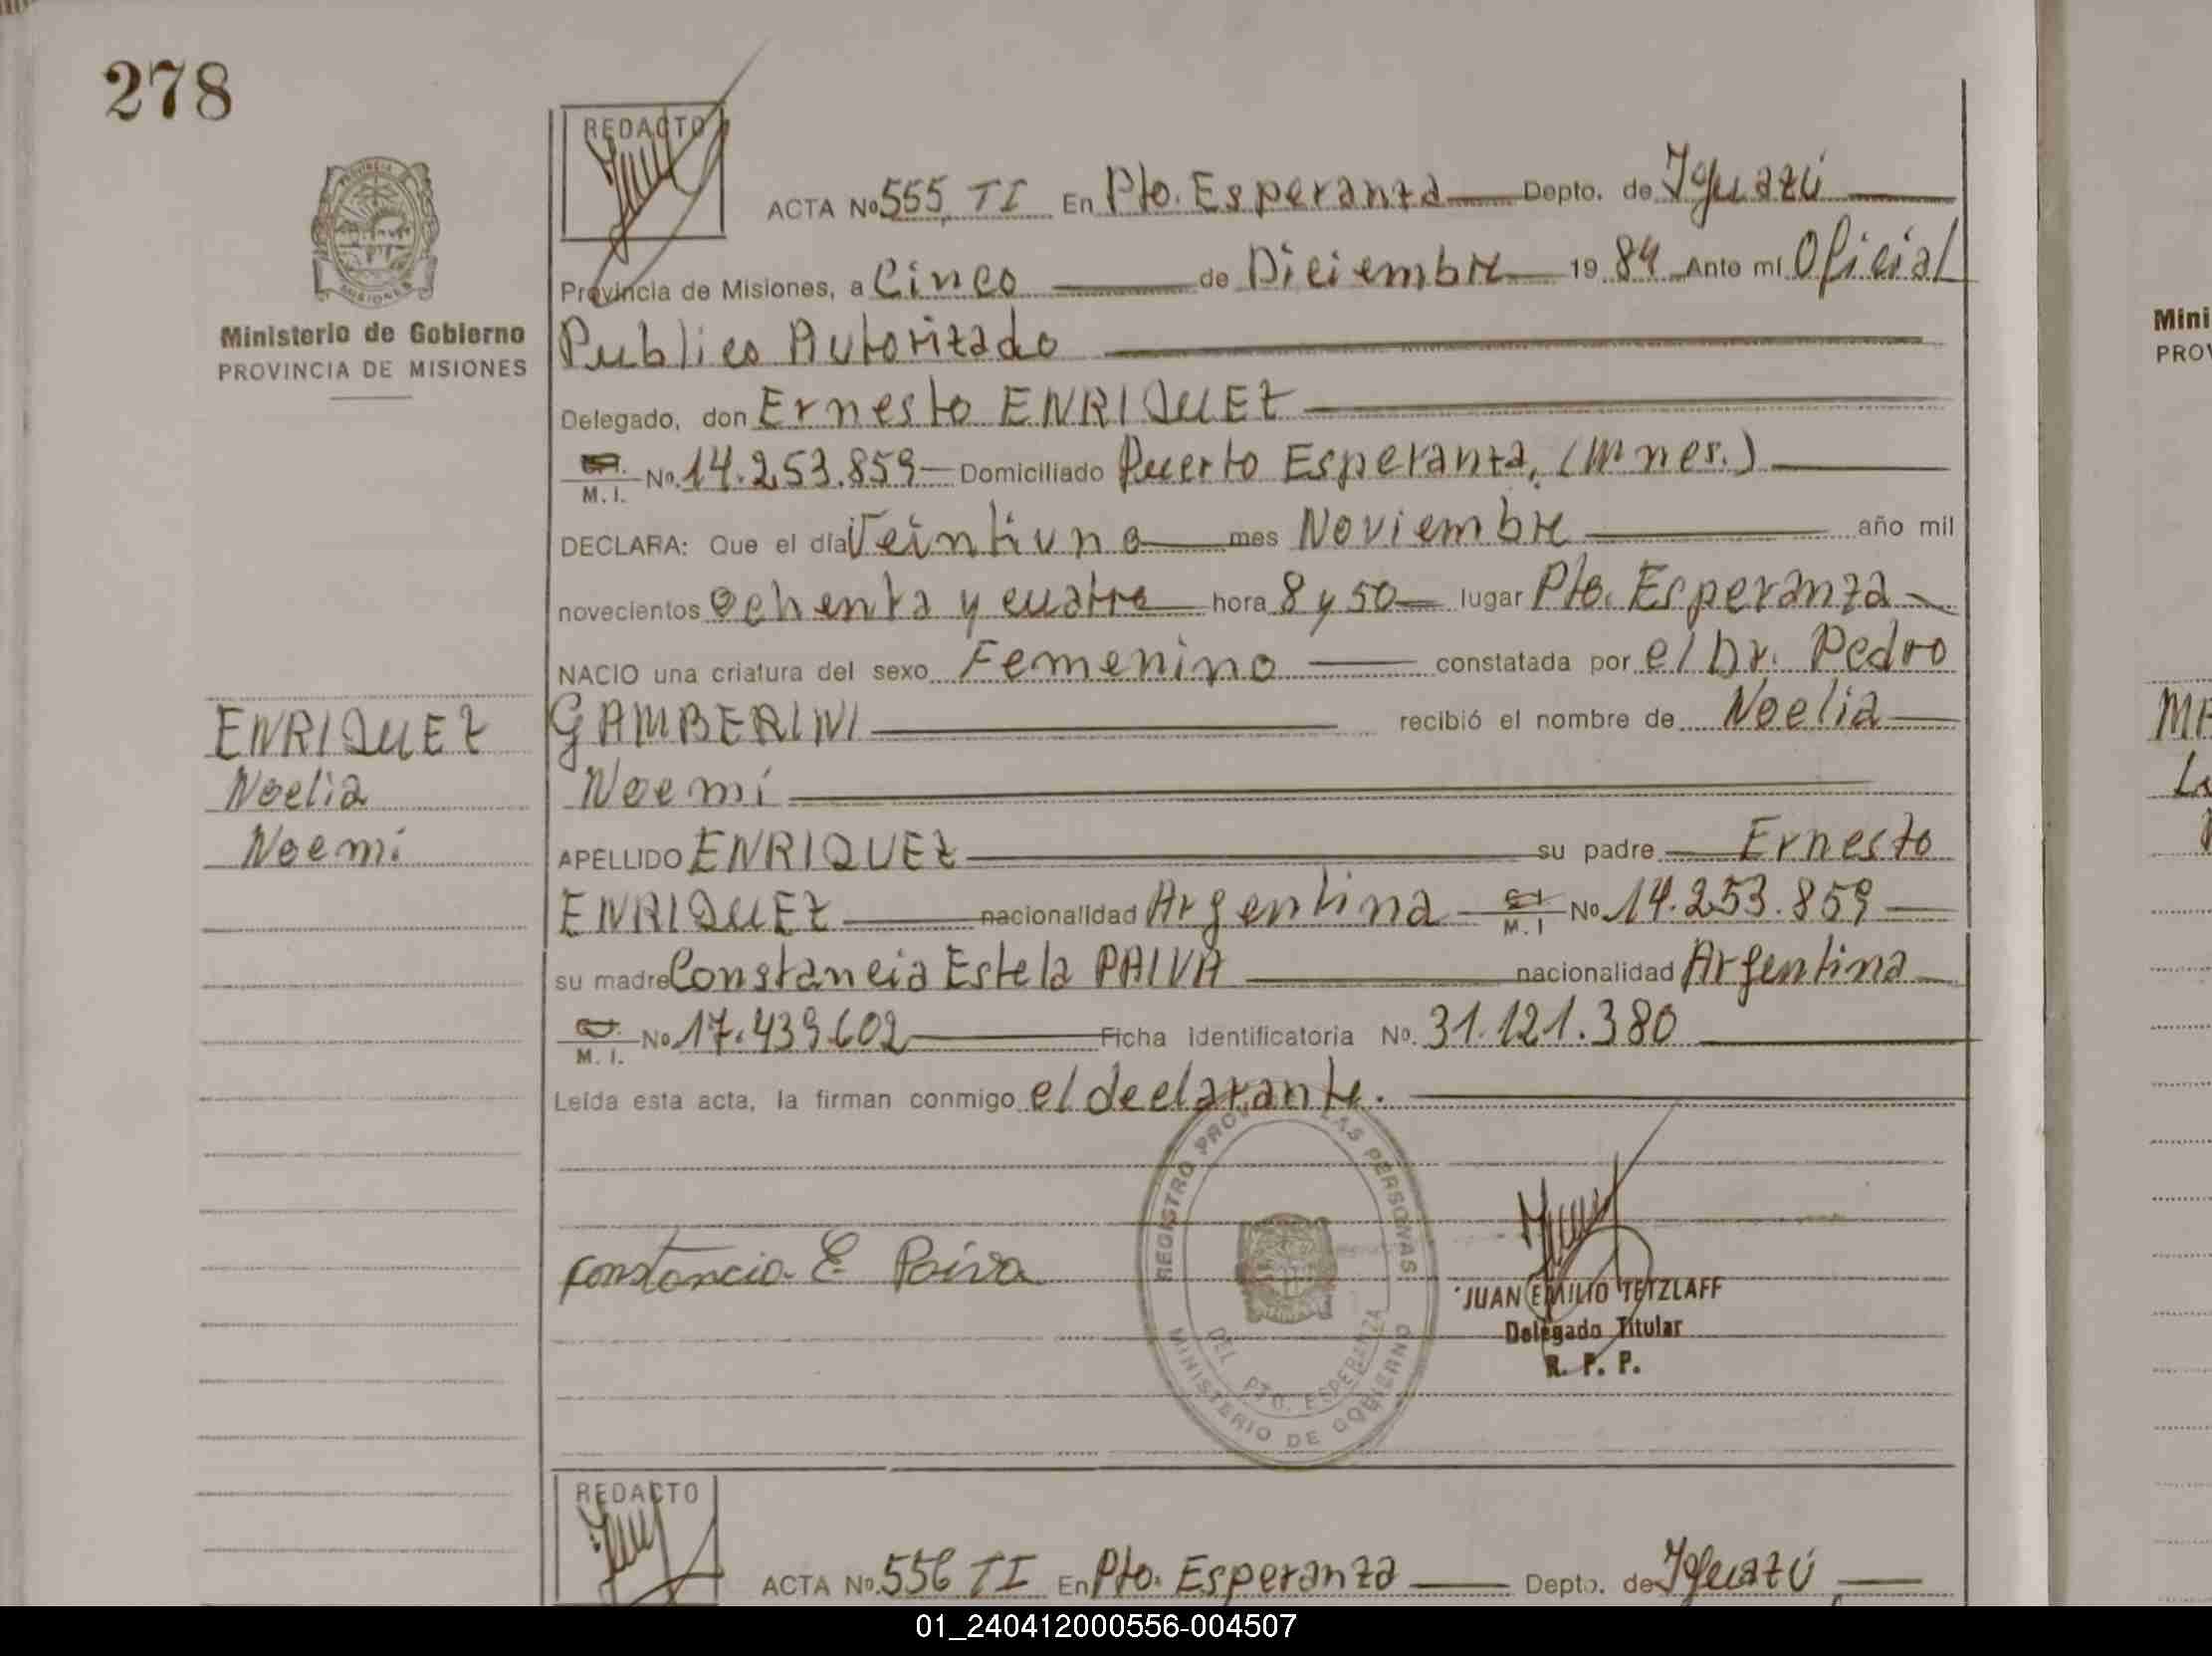 278
REDACTO
PROVINCIA
MISIONES
Ministerio de Gobierno
PROVINCIA DE MISIONES
ACTA No 555 TI En Pto. Esperanza Depto. de Iguazú
Provincia de Misiones, a Cinco de Diciembre 19 84 Ante mí Oficial
Publico Autorizado
Delegado, don Ernesto ENRIQUEZ
M. I. No. 14.253.859 Domiciliado Puerto Esperanza, (Mnes.)
DECLARA: Que el día Veintiuno mes Noviembre año mil
novecientos ochenta y cuatro hora 8 y 50 lugar Pto. Esperanza
NACIO una criatura del sexo Femenino constatada por el Dr. Pedro
GAMBERINI recibió el nombre de Noelia
Noemí
APELLIDO ENRIQUEZ su padre Ernesto
ENRIQUEZ nacionalidad Argentina M. I No 14.253.859
su madre Constancia Estela PAIVA nacionalidad Argentina
M. I. No 17.439.602 Ficha identificatoria No. 31.121.380
Leída esta acta, la firman conmigo el declarante.
ENRIQUEZ
Noelia
Noemí
Constancia E. Paiva
REGISTRO PRO LAS PERSONAS
DEL. PTO. ESPERANZA
MINISTERIO DE GOBIERNO
JUAN EMILIO TETZLAFF
Delegado Titular
R. P. P.
REDACTO
ACTA No. 556 TI En Pto. Esperanza Depto. de Iguazú
Mini
PROV
01_240412000556-004507